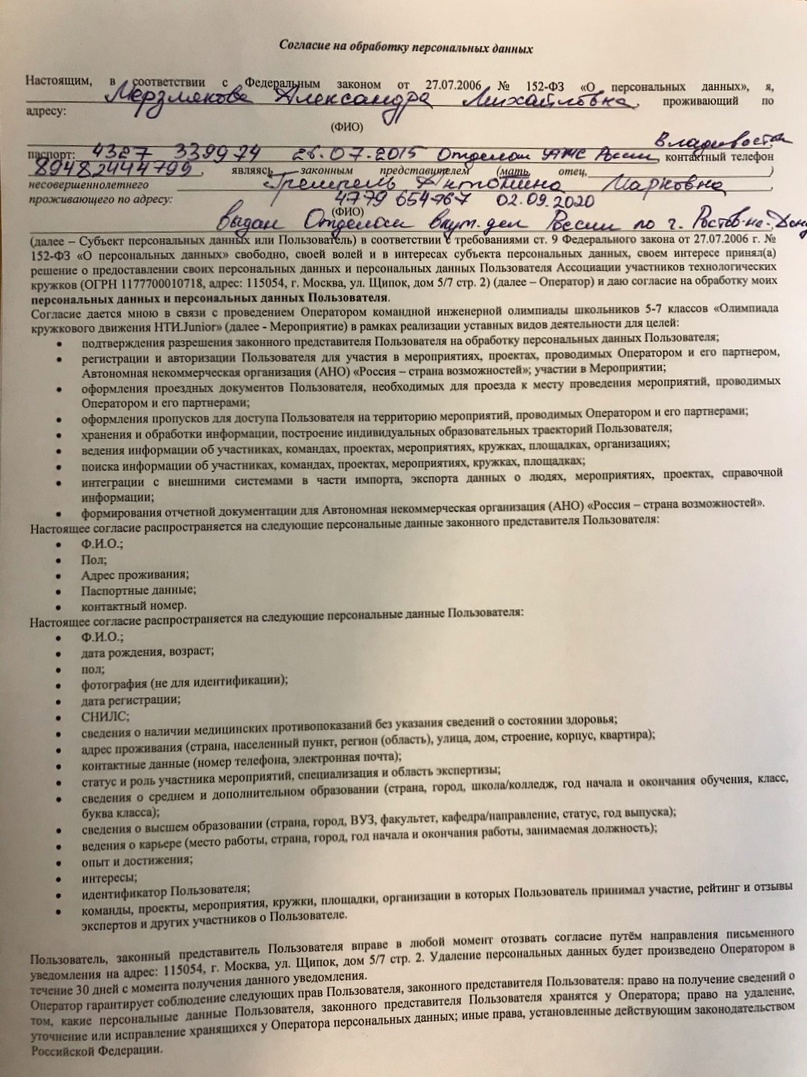 Согласие на обработку персональных данных
Настоящим, в соответствии с Федеральным законом от 27.07.2006 № 152-ФЗ «О персональных данных», я,
Мерзлякова Александра Михайловна, проживающий по
адресу:
(ФИО)
Владивосток
паспорт: 4327 339974 26.07.2015 Отделом УФМС России, контактный телефон
89482444795, являясь законным представителем (мать, отец, )
несовершеннолетнего Антонина Марковна
проживающего по адресу: 4779 654767 02.09.2020
(ФИО)
Выдан Отделом внут. дел России по г. Ростов-на-Дону
(далее – Субъект персональных данных или Пользователь) в соответствии с требованиями ст. 9 Федерального закона от 27.07.2006 г. №
152-ФЗ «О персональных данных» свободно, своей волей и в интересах субъекта персональных данных, своем интересе принял(а)
решение о предоставлении своих персональных данных и персональных данных Пользователя Ассоциации участников технологических
кружков (ОГРН 1177700010718, адрес: 115054, г. Москва, ул. Щипок, дом 5/7 стр. 2) (далее – Оператор) и даю согласие на обработку моих
персональных данных и персональных данных Пользователя.
Согласие дается мною в связи с проведением Оператором командной инженерной олимпиады школьников 5-7 классов «Олимпиада
кружкового движения НТИ.Junior» (далее - Мероприятие) в рамках реализации уставных видов деятельности для целей:
• подтверждения разрешения законного представителя Пользователя на обработку персональных данных Пользователя;
• регистрации и авторизации Пользователя для участия в мероприятиях, проектах, проводимых Оператором и его партнером,
Автономная некоммерческая организация (АНО) «Россия – страна возможностей»; участии в Мероприятии;
• оформления проездных документов Пользователя, необходимых для проезда к месту проведения мероприятий, проводимых
Оператором и его партнерами;
• оформления пропусков для доступа Пользователя на территорию мероприятий, проводимых Оператором и его партнерами;
• хранения и обработки информации, построение индивидуальных образовательных траекторий Пользователя;
• ведения информации об участниках, командах, проектах, мероприятиях, кружках, площадках, организациях;
• поиска информации об участниках, командах, проектах, мероприятиях, кружках, площадках;
• интеграции с внешними системами в части импорта, экспорта данных о людях, мероприятиях, проектах, справочной
информации;
• формирования отчетной документации для Автономная некоммерческая организация (АНО) «Россия – страна возможностей».
Настоящее согласие распространяется на следующие персональные данные законного представителя Пользователя:
• Ф.И.О.;
• Пол;
• Адрес проживания;
• Паспортные данные;
• контактный номер.
Настоящее согласие распространяется на следующие персональные данные Пользователя:
• Ф.И.О.;
• дата рождения, возраст;
• пол;
• фотография (не для идентификации);
• дата регистрации;
• СНИЛС;
• сведения о наличии медицинских противопоказаний без указания сведений о состоянии здоровья;
• адрес проживания (страна, населенный пункт, регион (область), улица, дом, строение, корпус, квартира);
• контактные данные (номер телефона, электронная почта);
• статус и роль участника мероприятий, специализация и область экспертизы;
• сведения о среднем и дополнительном образовании (страна, город, школа/колледж, год начала и окончания обучения, класс,
буква класса);
• сведения о высшем образовании (страна, город, ВУЗ, факультет, кафедра/направление, статус, год выпуска);
• ведения о карьере (место работы, страна, город, год начала и окончания работы, занимаемая должность);
• опыт и достижения;
• интересы;
• идентификатор Пользователя;
• команды, проекты, мероприятия, кружки, площадки, организации в которых Пользователь принимал участие, рейтинг и отзывы
экспертов и других участников о Пользователе.
Пользователь, законный представитель Пользователя вправе в любой момент отозвать согласие путём направления письменного
уведомления на адрес: 115054, г. Москва, ул. Щипок, дом 5/7 стр. 2. Удаление персональных данных будет произведено Оператором в
течение 30 дней с момента получения данного уведомления.
Оператор гарантирует соблюдение следующих прав Пользователя, законного представителя Пользователя: право на получение сведений о
том, какие персональные данные Пользователя, законного представителя Пользователя хранятся у Оператора; право на удаление,
уточнение или исправление хранящихся у Оператора персональных данных; иные права, установленные действующим законодательством
Российской Федерации.